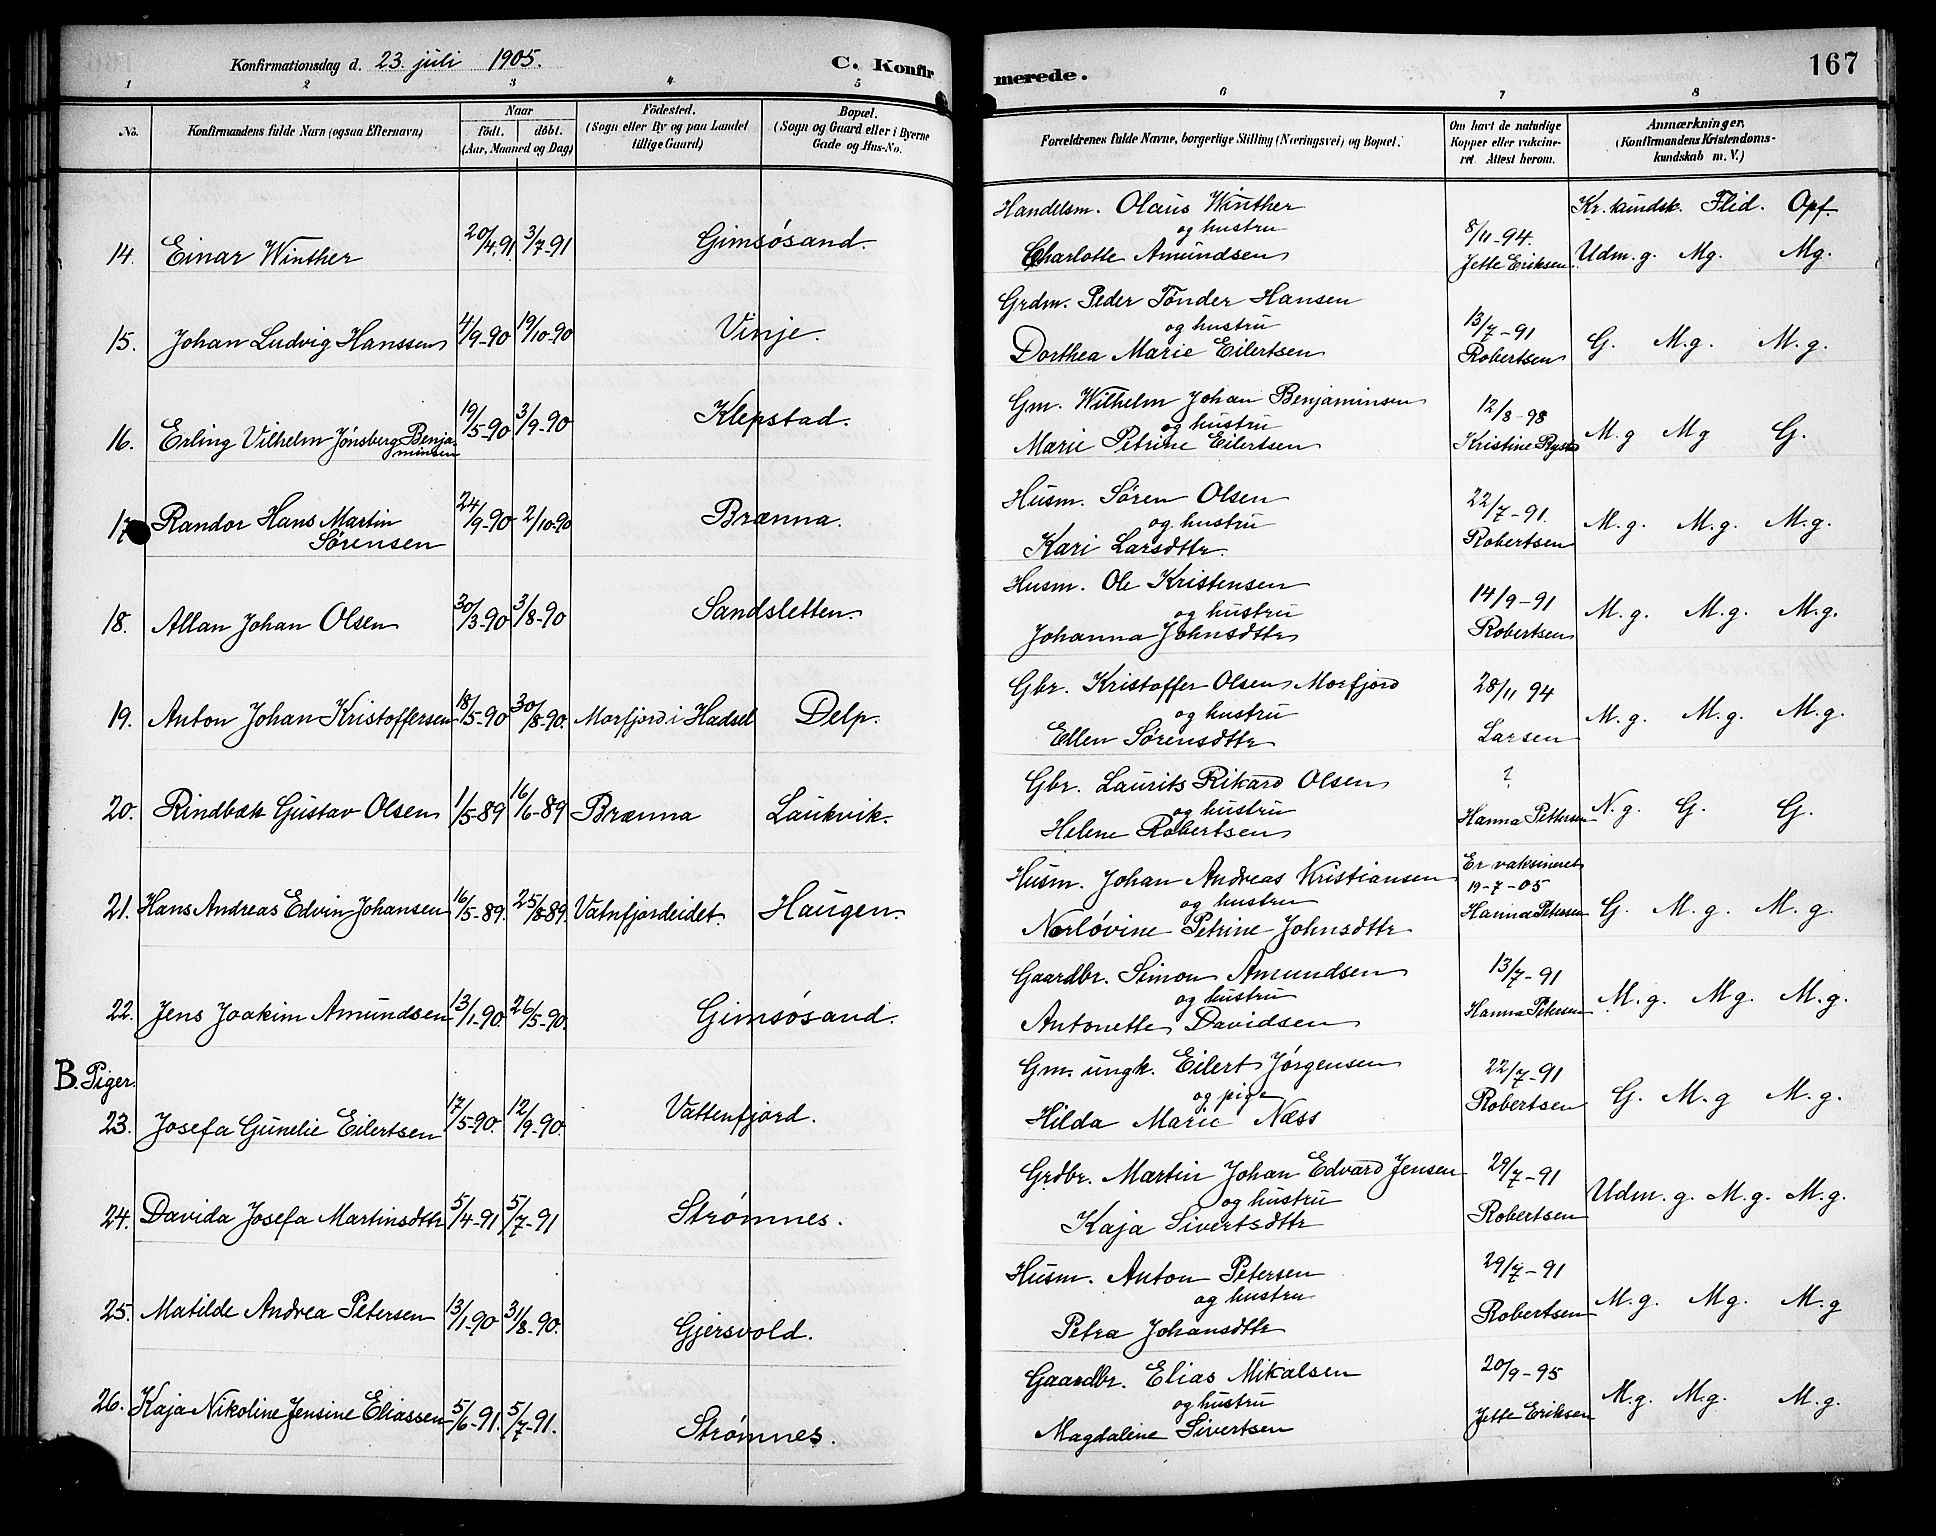 Konfirmationsdag d. 23. juli 1905. C. Konfirmerede. 167
1 2 3 4 5 6 7 8
No. Konfirmandens fulde Navn (ogsaa Efternavn) Naar født. døbt. (Aar, Maaned og Dag) Fødested. (Sogn eller By og paa Landet tillige Gaard) Bopæl. (Sogn og Gaard eller i Byerne Gade og Hus-No. Forældrenes fulde Navne, borgerlige Stilling (Næringsvei) og Bopæl. Om havt de naturlige Kopper eller vakcineret. Attest herom. Anmærkninger, (Konfirmandens Kristendomskundskab m. V.)
Kr. kundsk. Flid. Opf.
Handelsm. Olaus Winther
og hustru
14. Einar Winther 20/4.91 3/7-91 Gimsøsand. Charlotte Amundsen 8/11-94. Jette Eriksen. Udm. g. Mg. Mg.
Grdm. Peder Tønder Hansen
og hustru
15. Johan Ludvig Hanssen 4/9-90 19/10-90 Vinje. Dorthea Marie Eilertsen 13/7-91 Robertsen G. M.g. M.g.
Gm. Wilhelm Johan Benjaminsen
og hustru
16. Erling Vilhelm Jønsberg Benjaminsen 19/5-90 3/9-90 Klepstad. Marie Petrine Eilertsen 12/8-98 Kristine M.g Mg G.
Husm. Søren Olsen
og hustru
17 Randor Hans Martin Sørensen 24/9-90 2/10-90 Brænna. Kari Larsdttr. 22/7-91. Robertsen M.g. M.g. M.g.
Husm. Ole Kristensen
og hustru
18. Allan Johan Olsen 30/3-90 3/8-90 Sandsletten. Johanna Johnsdttr 14/9-91 Robertsen M.g. M.g. M.g.
Gbr. Kristoffer Olsen Morfjord
og hustru
19. Anton Johan Kristoffersen 18/5-90 30/8-90. Morfjord i Hadsel Delp. Ellen Sørensdttr 28/11 94 Larsen M.g. M.g. M.g.
Gbr. Laurits Rikard Olsen
og hustru
20. Rindbæk Gustav Olsen 1/5-89 16/6-89 Brænna Laukvik. Helene Robertsen ? Hanna Pettersen N.g. G. G.
Husm. Johan Andreas Kristiansen
og hustru
21. Hans Andreas Edvin Johansen 16/5-89. 25/8-89. Vatnfjordeidet. Haugen. Norløvine Petrine Johnsdttr Er vaksineret 19-7-05 Hanna Petersen G. M.g. M.g.
Gaardbr. Simon Amundsen
og hustru
22. Jens Joakim Amundsen 13/1-90. 26/5-90. Gimsøsand. Antonette Davidsen 13/7-91 Hanna Petersen M.g. Mg. M.g.
B. Piger.
Gm. ungk. Eilert Jørgensen
og pige
23. Josefa Gunelie Eilertsen 17/5-90. 12/9-90. Vattenfjord. Hilda Marie Næss 22/7-91 Robertsen G. M.g M.g.
Grdbr. Martin Johan Edvard Jensen
og hustru
24. Davida Josefa Martinsdttr 5/4-91 5/7-91 Strømnes. Kaja Sivertsdttr 29/7-91 Robertsen Udm. g. M.g. M.g.
Husm. Anton Petersen
og hustru
25. Matilde Andrea Petersen 13/1-90 31/8-90. Gjersvold. Petra Johansdttr 29/7-91 Robertsen M.g. Mg. M.g
Gaardbr. Elias Mikalsen
og hustru
26. Kaja Nikoline Jensine Eliassen 5/6-91. 5/7-91. Strømnes. Magdaline Sivertsen 20/9-95 Jette Eriksen M.g. M.g. M.g.